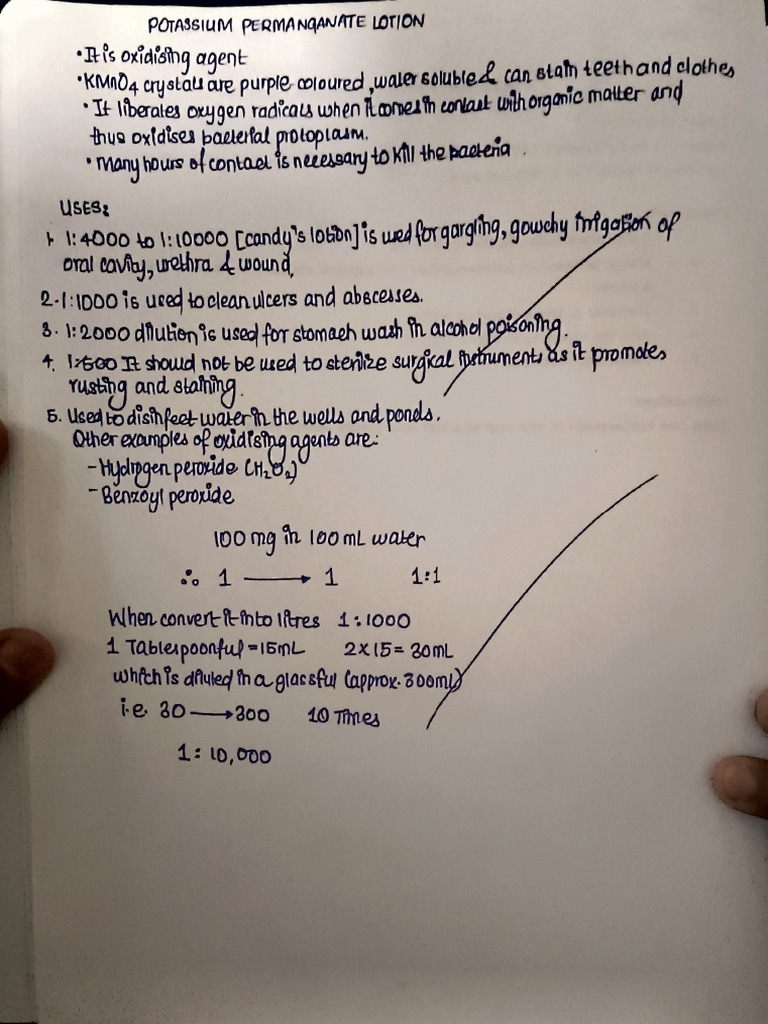 POTASSIUM PERMANGANATE LOTION
• It is oxidising agent
• KMnO4 crystals are purple coloured, water soluble & can stain teeth and clothes
• It liberates oxygen radicals when it comes in contact with organic matter and
thus oxidises bacterial protoplasm.
• Many hours of contact is necessary to kill the bacteria.
USES:
1. 1:4000 to 1:10000 [candy's lotion] is used for gargling, irrigation of
oral cavity, urethra & wound,
2. 1:1000 is used to clean ulcers and abscesses.
3. 1:2000 dilution is used for stomach wash in alcohol poisoning.
4. It should not be used to sterilize surgical instruments as it promotes
rusting and staining.
5. Used to disinfect water in the wells and ponds.
Other examples of oxidising agents are:
- Hydrogen peroxide (H2O2)
- Benzoyl peroxide
100 mg in 100 mL water
∴ 1 → 1 1:1
When convert it into litres 1:1000
1 Tablespoonful = 15mL 2 x 15 = 30mL
which is diluted in a glassful (approx. 300ml)
i.e. 30 → 300 10 Times
1: 10,000